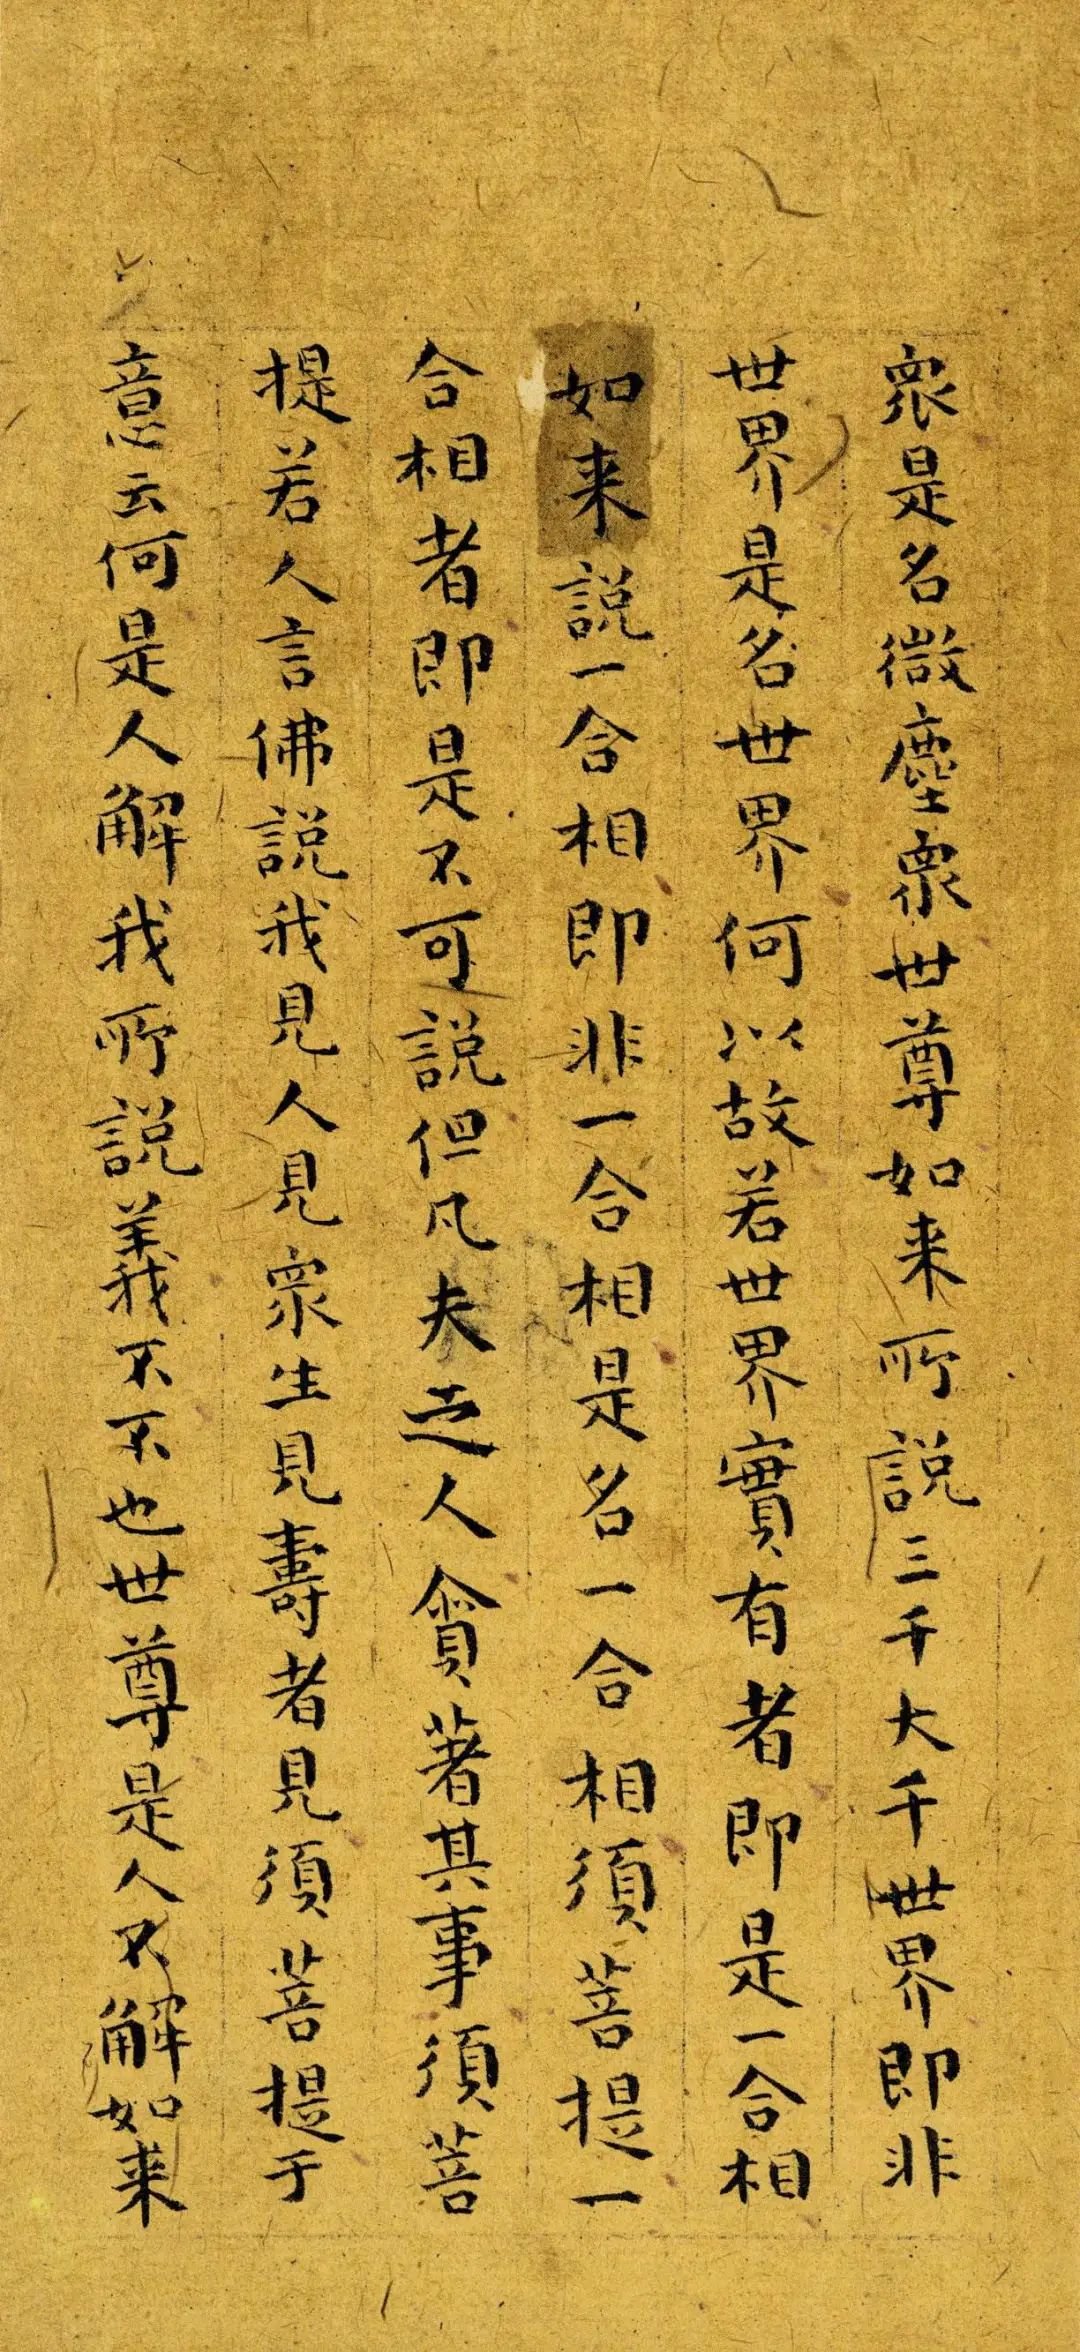 衆是名微塵衆世尊如来所説三千大千世界即非
世界是名世界何以故若世界實有者即是一合相
如来説一合相即非一合相是名一合相須菩提一
合相者即是不可説但凡夫之人貪著其事須菩
提若人言佛説我見人見衆生見壽者見須菩提于
意云何是人解我所説義不不也世尊是人不解如来